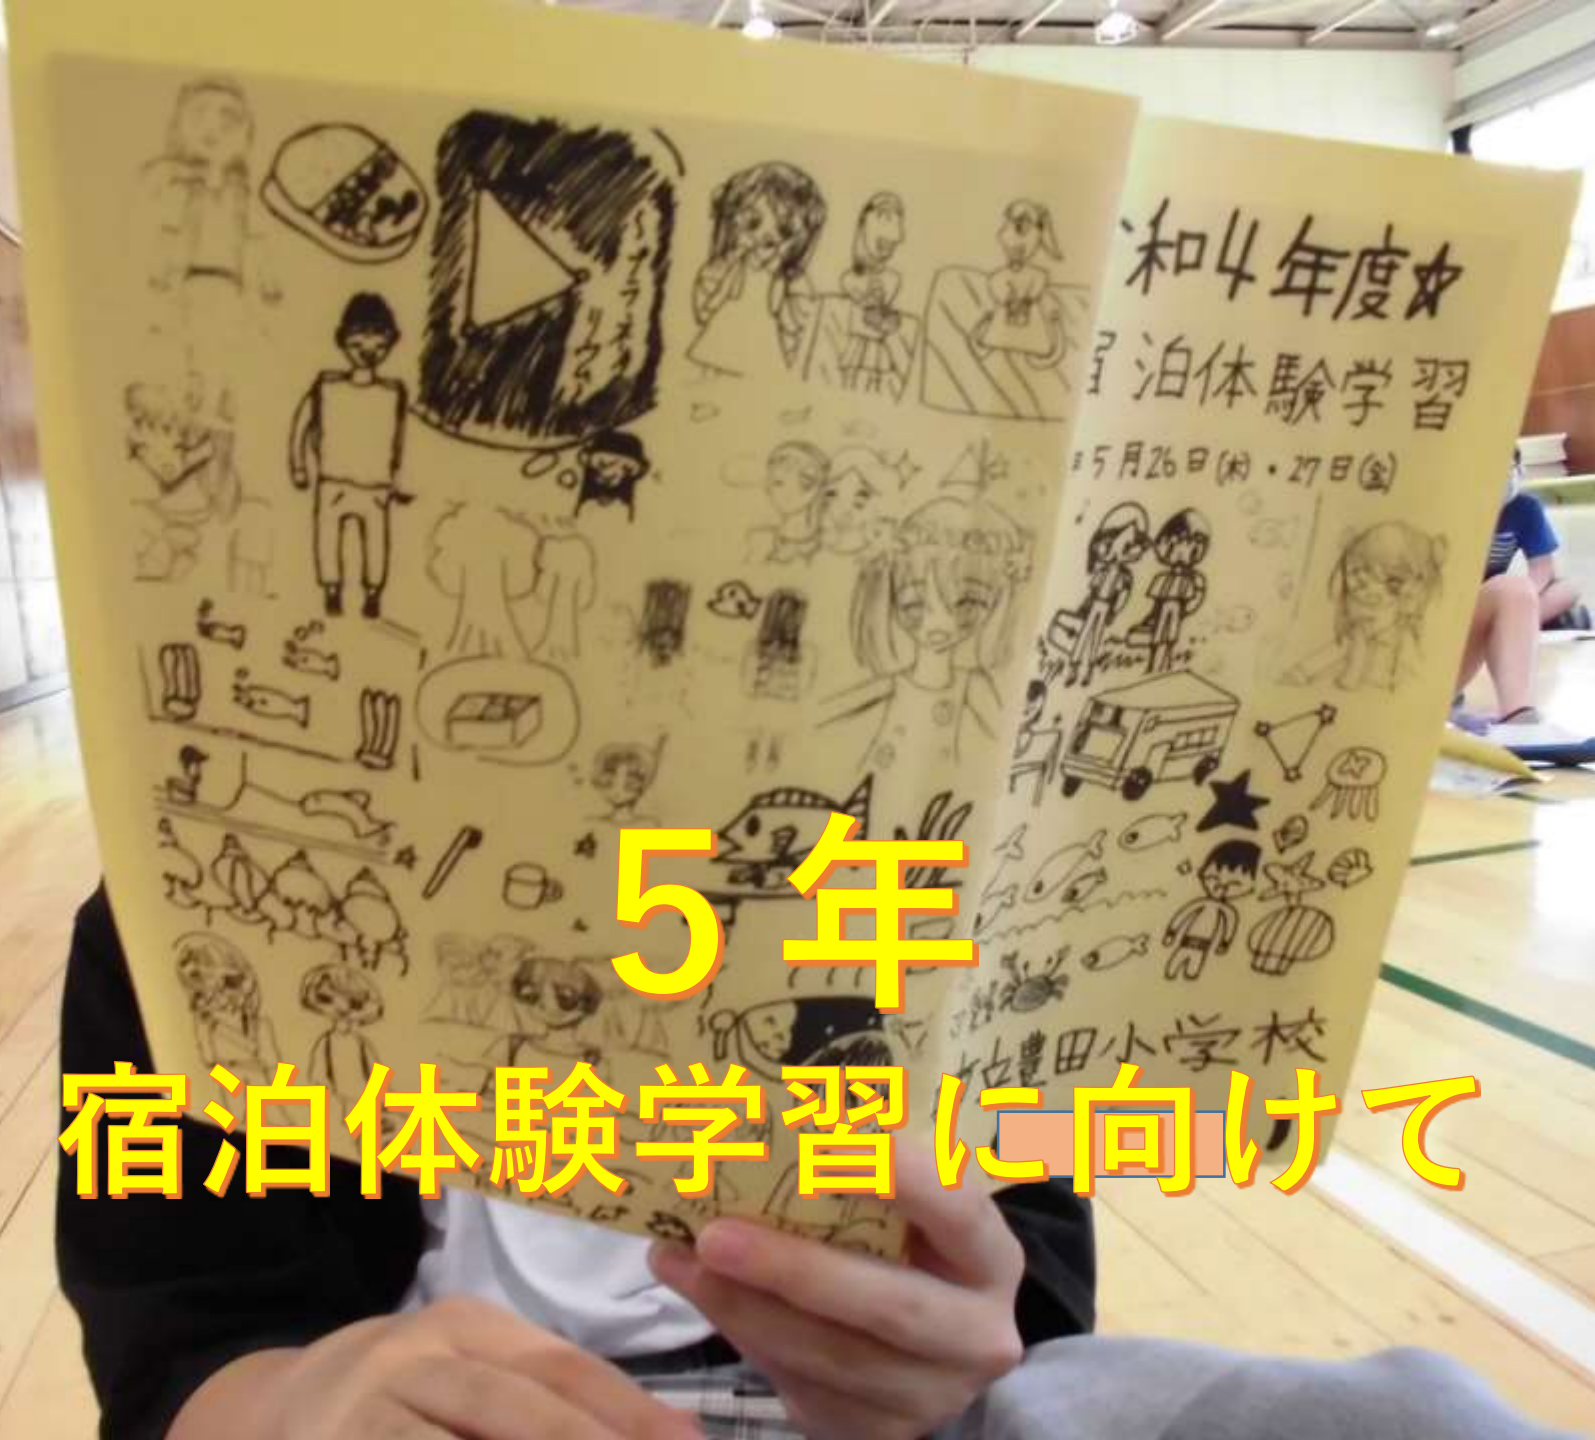 和4年度☆
泊体験学習
5月26日(木)・27日(金)
立豊田小学校
5年
宿泊体験学習に向けて